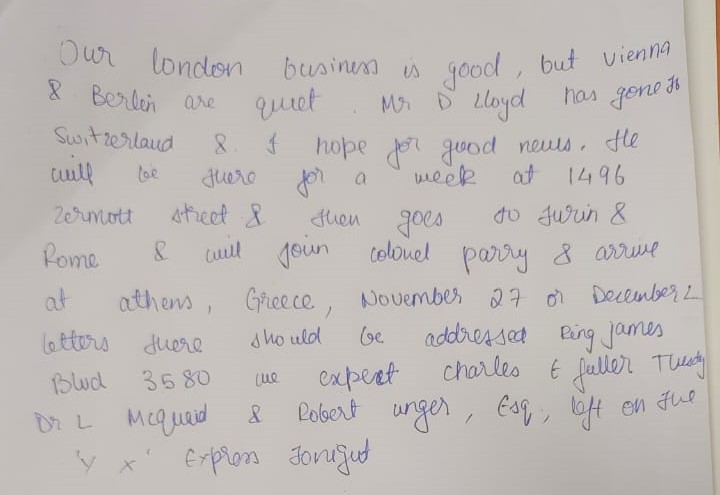 Our london business is good, but vienna
& Berlin are quiet. Mr D Lloyd has gone to
Switzerland & I hope for good news. He
will be there for a week at 1496
Zermott street & then goes to turin &
Rome & will join colonel parry & arrive
at athens, Greece, November 27 or December 2
letters there should be addressed King james
Blvd 3580 we expect charles E fuller Tuesday
Dr L Mcquaid & Robert unger, Esq, left on the
'Y X' Express tonight